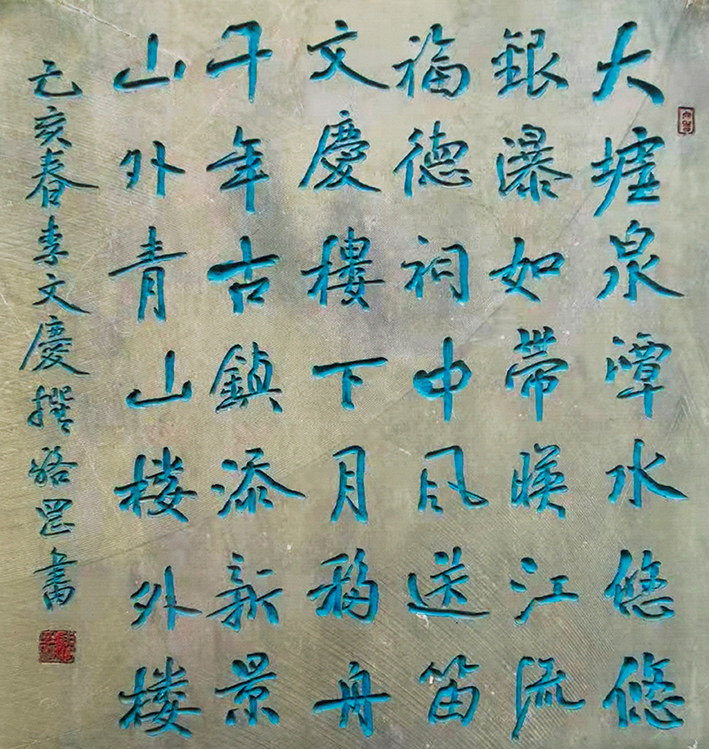 大墟泉潭水悠悠
銀瀑如帶暎江流
福德祠中风送笛
文慶樓下月移舟
千年古鎮添新景
山外青山楼外楼
己亥春李文慶撰路罡書